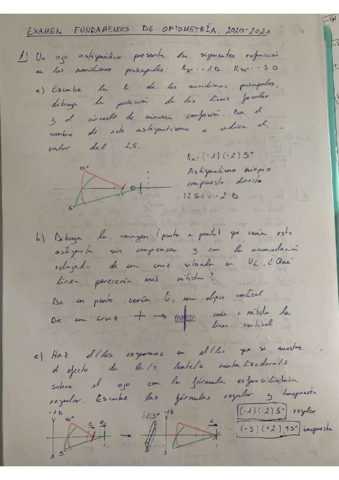 EXAMEN FUNDAMENTOS DE OPTOMETRÍA. 2020-2021
1) Un ojo astigmático presenta la siguiente refracción
en los meridianos principales. R5º = -1D R95º = -3D
a) Escribe la R de los meridianos principales,
dibuja la posición de las líneas focales
y el círculo de mínima confusión. Da el
nombre de este astigmatismo e indica el
valor del IS.
R: (-1)(-2)5º
Astigmatismo miopico
compuesto directo
IS = -2 D
95º
5º
b) Dibuja la imagen (punto a punto) que vería este
astígmata sin compensar y con la acomodación
relajada de una cruz situada en VL. ¿Qué
línea parecería más nítida?
De un punto vería 0, una elipse vertical
De una cruz + → más nítida la
línea vertical
c) Haz el/los esquemas en el/los que se muestre
el efecto de la/s lente/s neutralizadora/s
sobre el ojo con la fórmula esferocilíndrica
regular. Escribe las fórmulas regular y traspuesta
(-1)(-2)5º regular
(-3)(+2)95º traspuesta